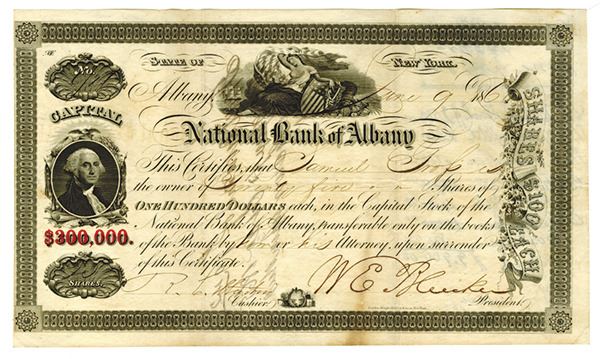 No.
STATE OF NEW YORK.
CAPITAL
Albany, June 9 186
National Bank of Albany
This Certifies, that Samuel
the owner of Twenty five Shares of
ONE HUNDRED DOLLARS each, in the Capital Stock of the
National Bank of Albany, transferable only on the books
of the Bank by him or his Attorney, upon surrender
of this Certificate.
$300,000.
SHARES.
W E Bleecker
Cashier. President.
SHARES $100 EACH